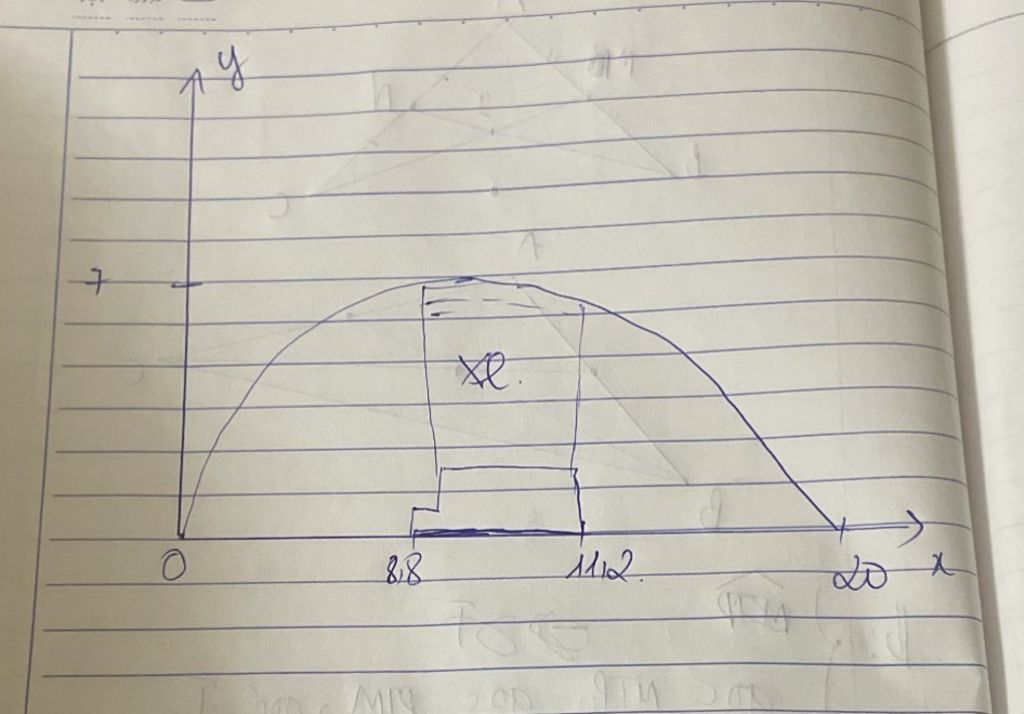 y
7
xe.
0 8,8 11,2. 20 x